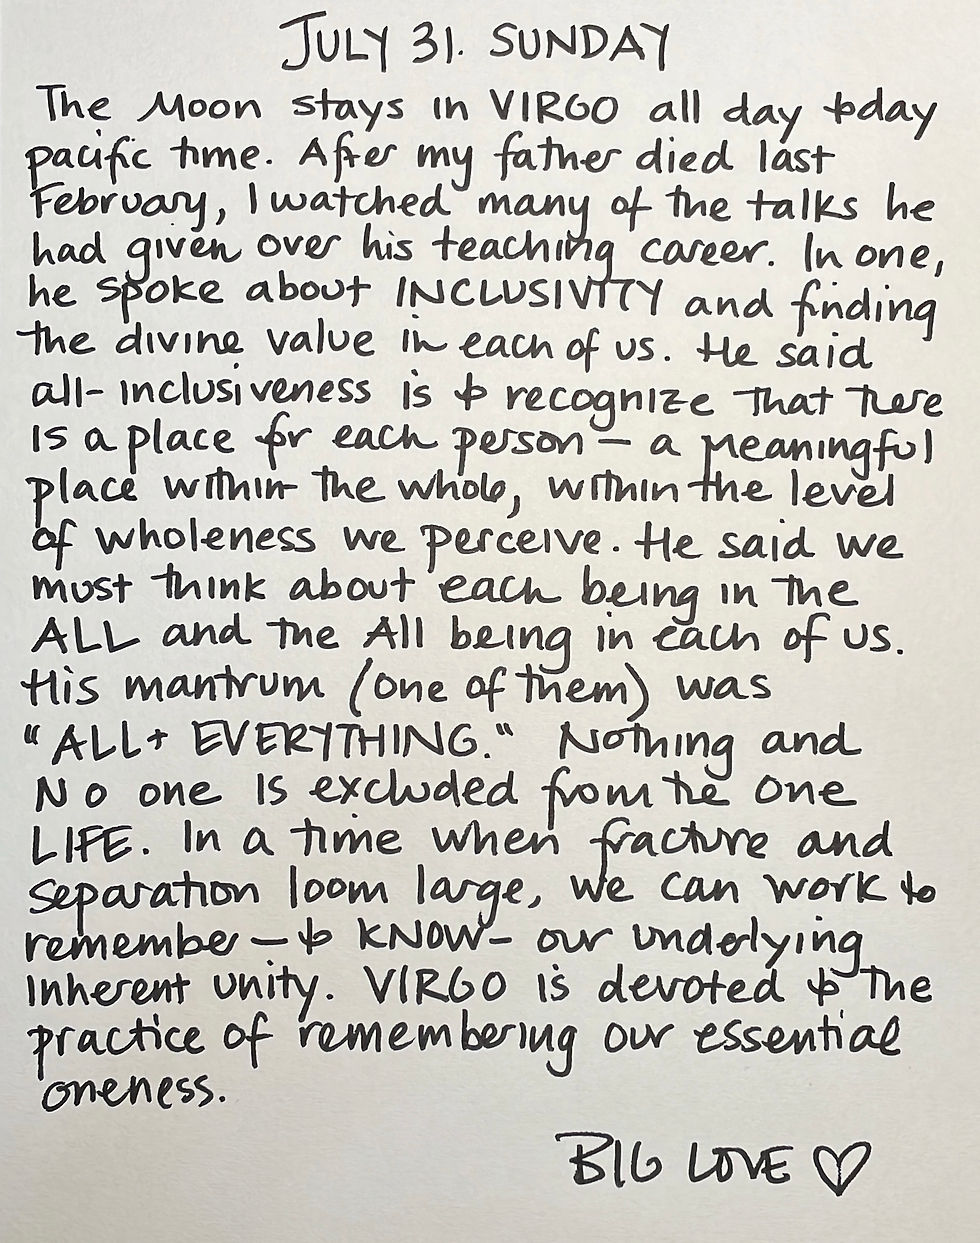 JULY 31. SUNDAY
The Moon stays in VIRGO all day today
pacific time. After my father died last
February, I watched many of the talks he
had given over his teaching career. In one,
he spoke about INCLUSIVITY and finding
the divine value in each of us. He said
all-inclusiveness is to recognize that there
is a place for each person — a meaningful
place within the whole, within the level
of wholeness we perceive. He said we
must think about each being in the
ALL and the All being in each of us.
His mantrum (one of them) was
"ALL + EVERYTHING." Nothing and
No one is excluded from the one
LIFE. In a time when fracture and
separation loom large, we can work to
remember — to KNOW — our underlying
inherent unity. VIRGO is devoted to the
practice of remembering our essential
oneness.
BIG LOVE ♡